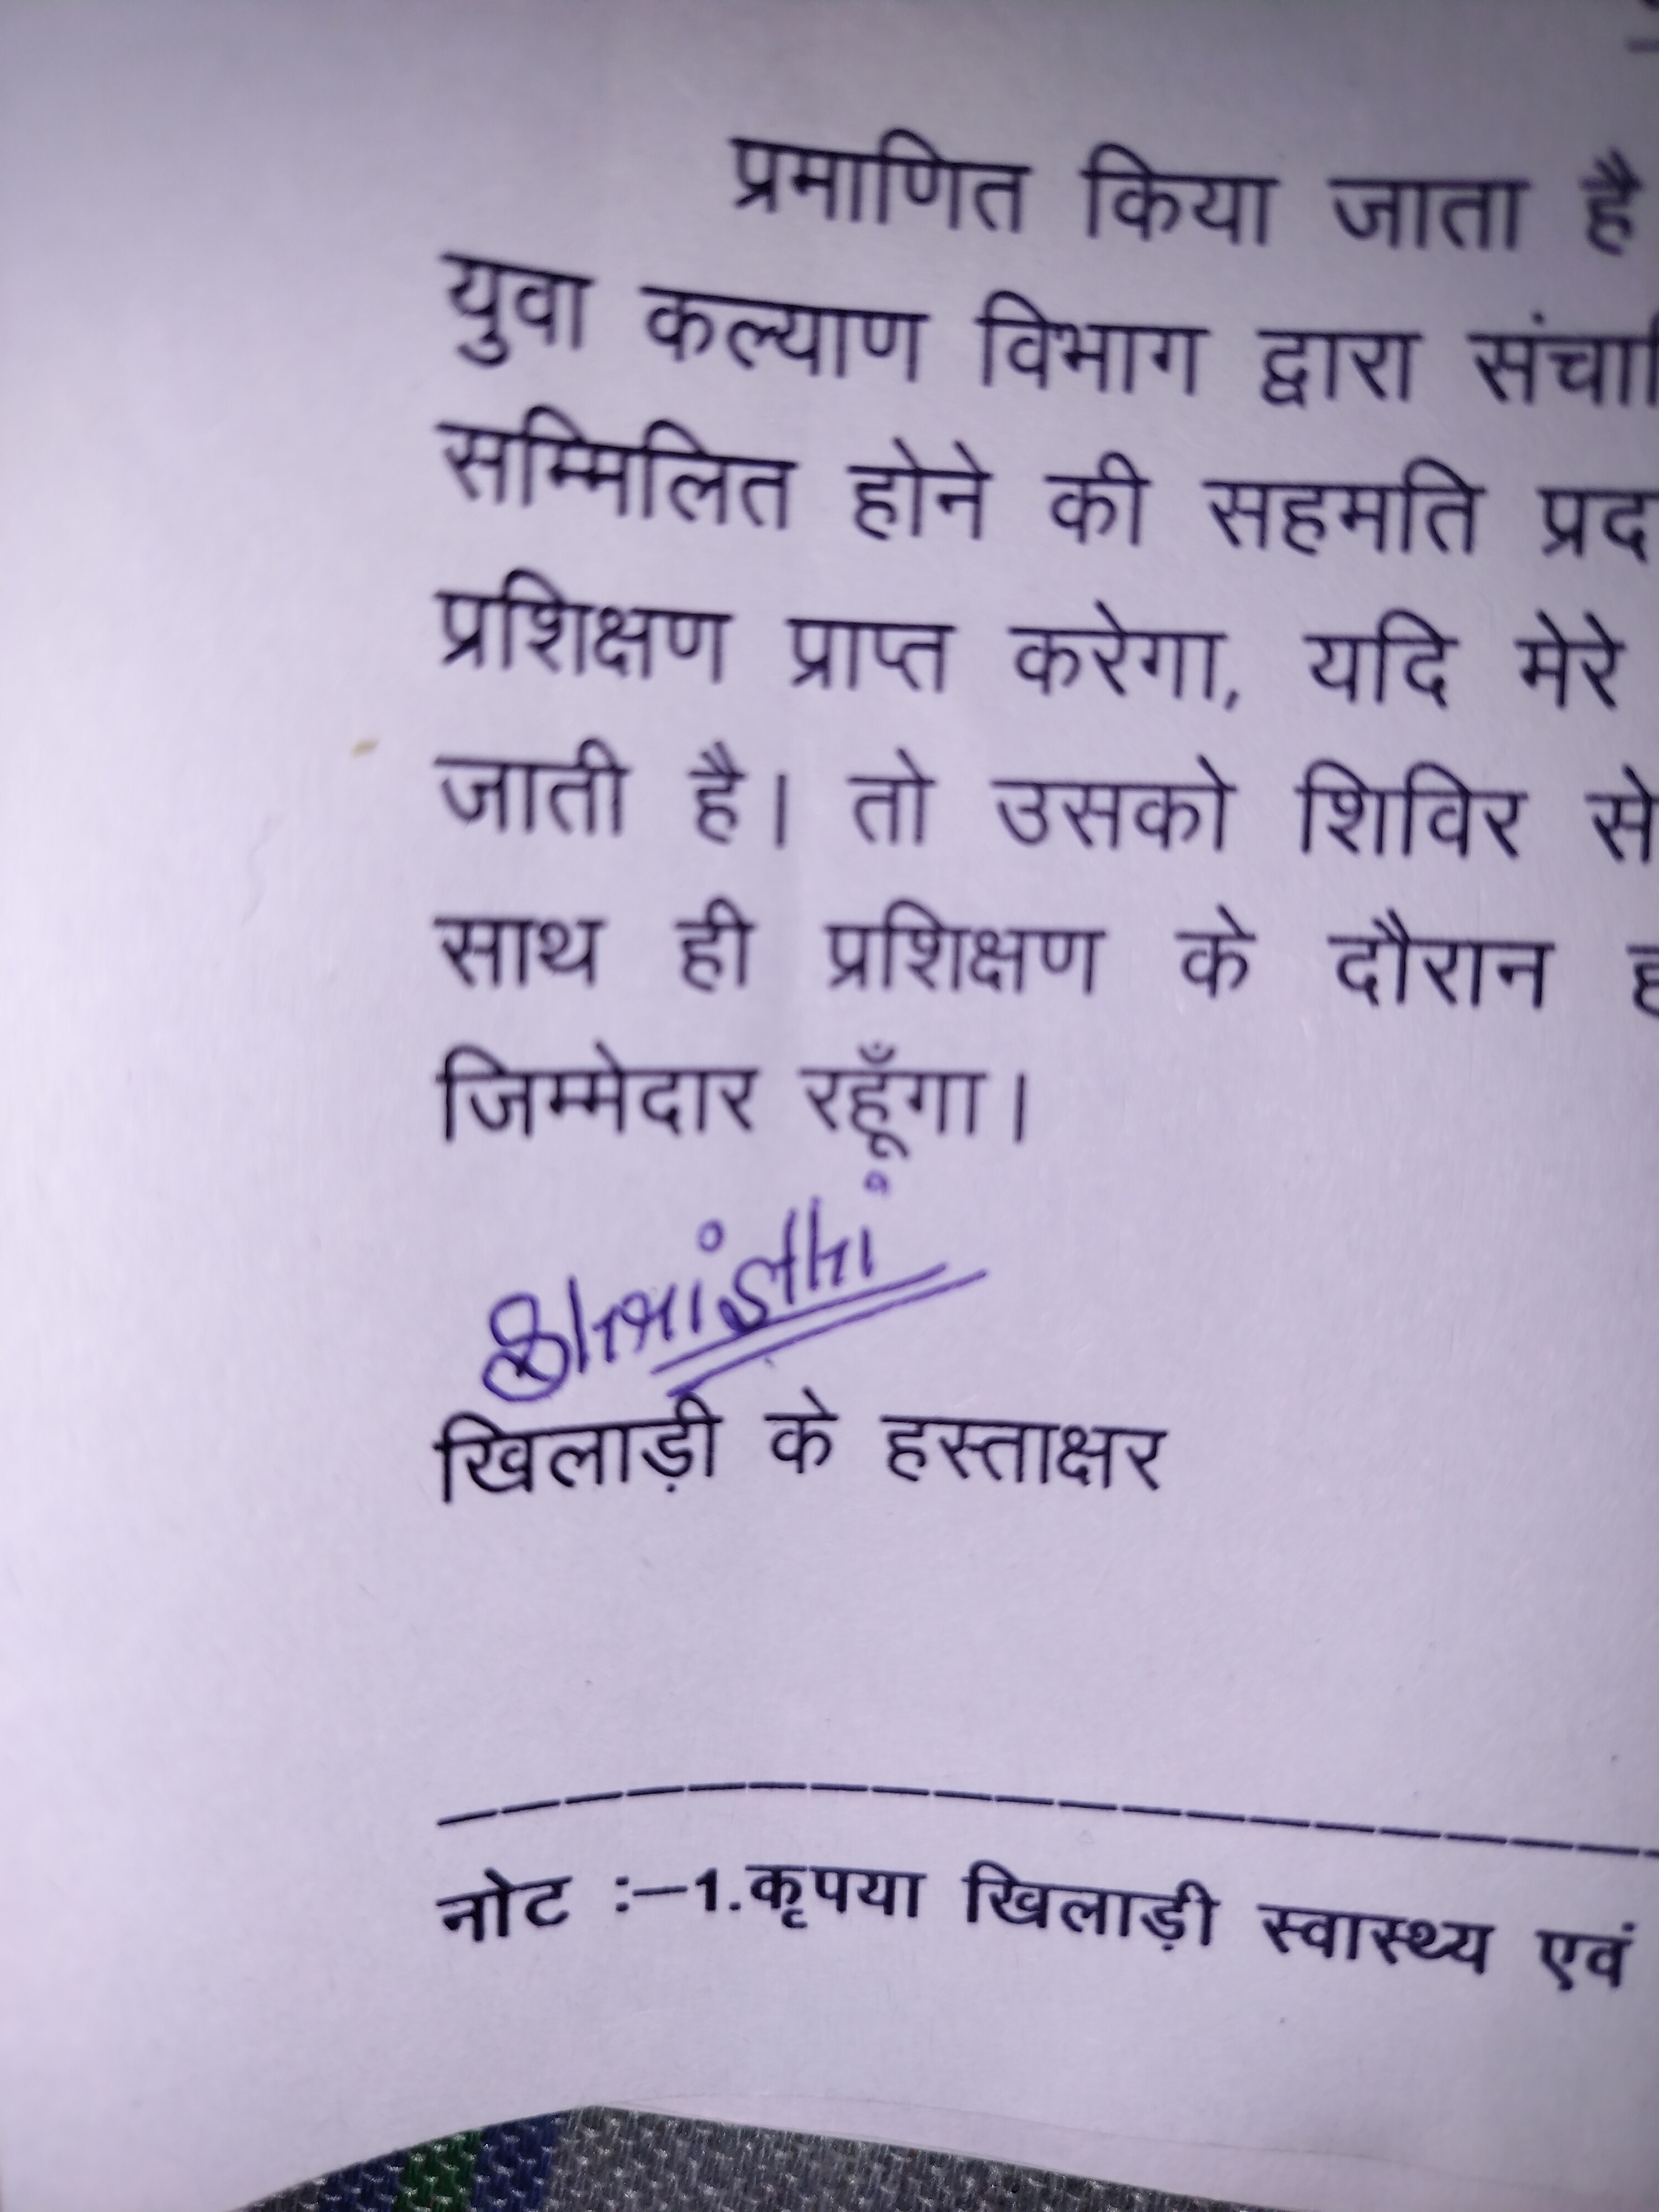 प्रमाणित किया जाता है
युवा कल्याण विभाग द्वारा संचालि
सम्मिलित होने की सहमति प्रद
प्रशिक्षण प्राप्त करेगा, यदि मेरे
जाती है। तो उसको शिविर से
साथ ही प्रशिक्षण के दौरान ह
जिम्मेदार रहूँगा।
खिलाड़ी के हस्ताक्षर
नोट :–1.कृपया खिलाड़ी स्वास्थ्य एवं